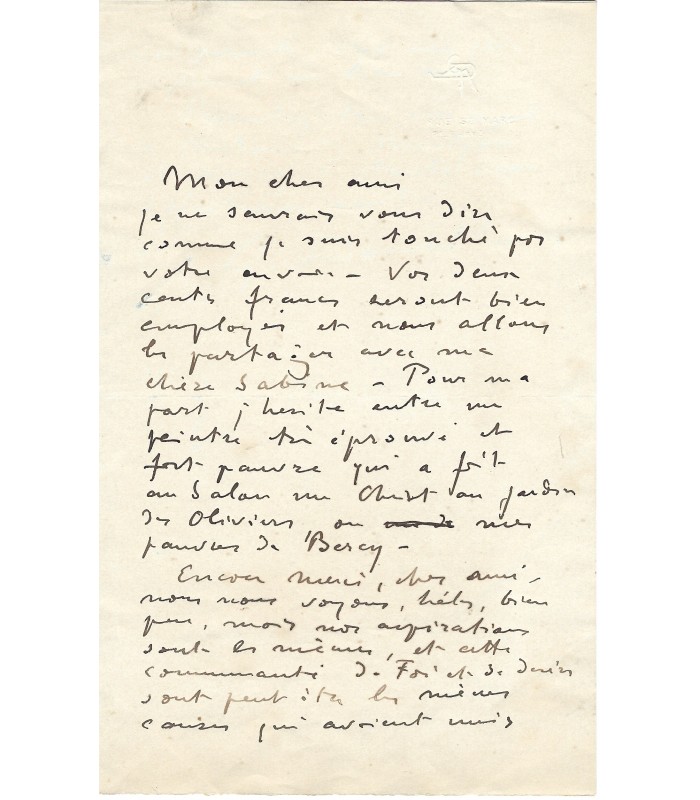 Mon cher ami
je ne saurais vous dire
comme je suis touché par
votre envoi – Vos deux
cents francs seront bien
employés et nous allons
les partager avec ma
chère Sabine – Pour ma
part j'hesite entre un
peintre très éprouvé et
fort pauvre qui a fait
au Salon un Christ au jardin
des Oliviers ou mes
pauvres de Bercy –
Encore merci, cher ami –
nous nous voyons, hélas, bien
peu, mais nos aspirations
sont les mêmes, et cette
communauté de Foi et de désirs
sont peut être les mêmes
causes qui avaient unis